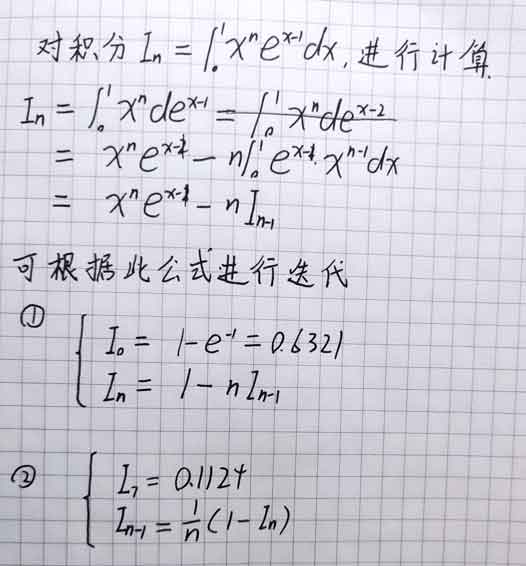 对积分 Iₙ = ∫₀¹ xⁿeˣ⁻¹dx, 进行计算
Iₙ = ∫₀¹ xⁿdeˣ⁻¹ = ∫₀¹ xⁿdeˣ⁻²
= xⁿeˣ⁻¹ - n∫₀¹ eˣ⁻¹·xⁿ⁻¹dx
= xⁿeˣ⁻¹ - nIₙ₋₁
可根据此公式进行迭代
① { I₀ = 1-e⁻¹ = 0.6321
Iₙ = 1-nIₙ₋₁
② { I₇ = 0.1124
Iₙ₋₁ = 1/n (1-Iₙ)